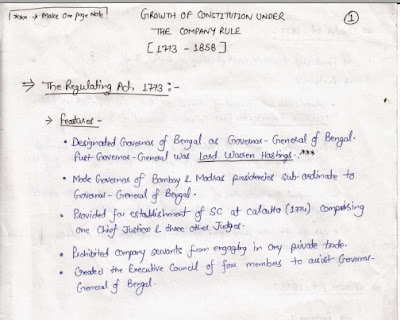 *** → Make One page Note
GROWTH OF CONSTITUTION UNDER
THE COMPANY RULE
[1773 - 1858]
1
⇒ The Regulating Act, 1773 :-
→ Features -
• Designated Governor of Bengal as Governor-General of Bengal.
First Governor-General was Lord Warren Hastings. ***
• Made Governors of Bombay & Madras presidencies sub-ordinate to
Governor-General of Bengal.
• Provided for establishment of SC at Calcutta (1774) comprising
one Chief Justice & three other Judges.
• Prohibited Company servants from engaging in any private trade.
• Created the Executive Council of four members to assist Governor-
General of Bengal.